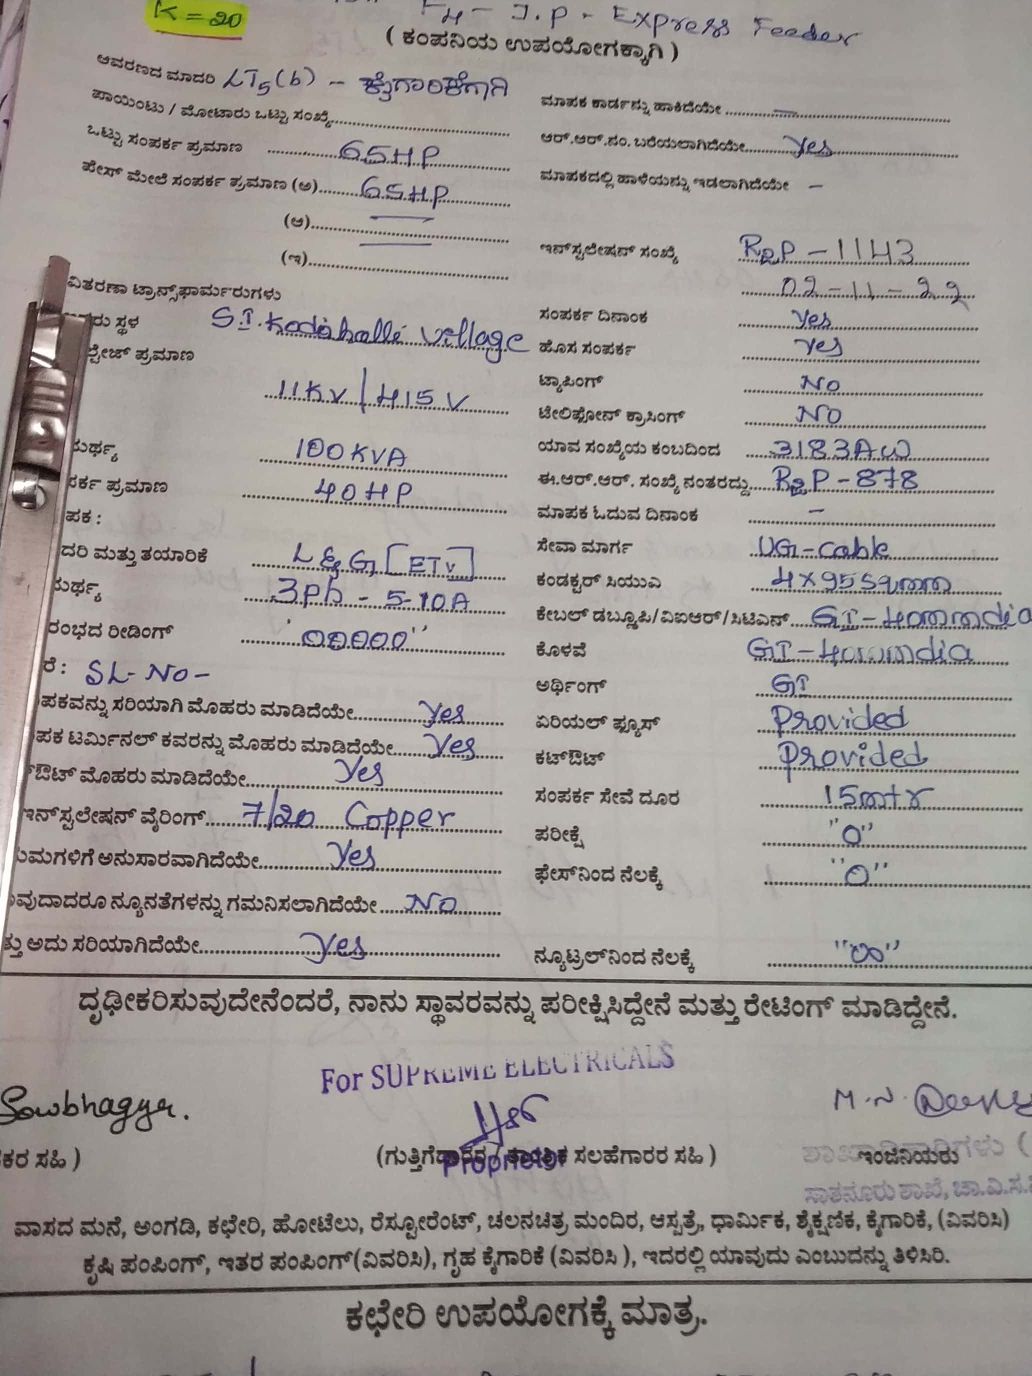 K = 20
F4 - I.P - Express Feeder
( ಕಂಪನಿಯ ಉಪಯೋಗಕ್ಕಾಗಿ )
ಆವರಣದ ಮಾದರಿ LT5(b) - ಕೈಗಾರಿಕೆಗಾಗಿ
ಮಾಪಕ ಕಾರ್ಡನ್ನು ಹಾಕಿದೆಯೇ —
ಪಾಯಿಂಟು / ಮೋಟಾರು ಒಟ್ಟು ಸಂಖ್ಯೆ
ಆರ್.ಆರ್.ನಂ. ಬರೆಯಲಾಗಿದೆಯೇ yes
ಒಟ್ಟು ಸಂಪರ್ಕ ಪ್ರಮಾಣ 65HP
ಮಾಪಕದಲ್ಲಿ ಹಾಳೆಯನ್ನು ಇಡಲಾಗಿದೆಯೇ –
ಪೇಸ್ ಮೇಲೆ ಸಂಪರ್ಕ ಪ್ರಮಾಣ (ಅ) 65HP
(ಆ)
ಇನ್‌ಸ್ಟಲೇಷನ್ ಸಂಖ್ಯೆ R2P-1143
(ಇ)
02-11-22
ವಿತರಣಾ ಟ್ರಾನ್ಸ್‌ಫಾರ್ಮರುಗಳು
ಸಂಪರ್ಕ ದಿನಾಂಕ yes
ರು ಸ್ಥಳ S.I. Kodihalli Village
ಹೊಸ ಸಂಪರ್ಕ yes
ಲ್ಟೇಜ್ ಪ್ರಮಾಣ
11KV/415V
ಟ್ಯಾಪಿಂಗ್ NO
ಟೇಲಿಫೋನ್ ಕ್ರಾಸಿಂಗ್ NO
ಮರ್ಥ್ಯ 100KVA
ಯಾವ ಸಂಖ್ಯೆಯ ಕಂಬದಿಂದ 3183AW
ರ್ಕ ಪ್ರಮಾಣ 40HP
ಈ.ಆರ್.ಆರ್. ಸಂಖ್ಯೆ ನಂತರದ್ದು R2P-878
ಪಕ :
ಮಾಪಕ ಓದುವ ದಿನಾಂಕ –
ದರಿ ಮತ್ತು ತಯಾರಿಕೆ L&G [ETV]
ಸೇವಾ ಮಾರ್ಗ UG-cable
ಮರ್ಥ್ಯ 3Ph - 5-10A
ಕಂಡಕ್ಟರ್ ಸಿಯುಎ 4x95sqmm
ರಂಭದ ರೀಡಿಂಗ್ "00000"
ಕೇಬಲ್ ಡಬ್ಲೂಪಿ/ವಿಐಆರ್/ಸಿಟಿಎನ್ GI-40mmdia
ರೆ : SL-NO-
ಕೊಳವೆ GI-40mmdia
ಅರ್ಥಿಂಗ್ GI
ಪಕವನ್ನು ಸರಿಯಾಗಿ ಮೊಹರು ಮಾಡಿದೆಯೇ yes
ಏರಿಯಲ್ ಫ್ಯೂಸ್ Provided
ಪಕ ಟರ್ಮಿನಲ್ ಕವರನ್ನು ಮೊಹರು ಮಾಡಿದೆಯೇ yes
ಕಟ್‌ಔಟ್ Provided
‌ಔಟ್ ಮೊಹರು ಮಾಡಿದೆಯೇ yes
ಸಂಪರ್ಕ ಸೇವೆ ದೂರ 15mtr
ಇನ್‌ಸ್ಟಲೇಷನ್ ವೈರಿಂಗ್ 7/20 Copper
ಪರೀಕ್ಷೆ "0"
ಯಮಗಳಿಗೆ ಅನುಸಾರವಾಗಿದೆಯೇ yes
ಫೇಸ್‌ನಿಂದ ನೆಲಕ್ಕೆ "0"
ವುದಾದರೂ ನ್ಯೂನತೆಗಳನ್ನು ಗಮನಿಸಲಾಗಿದೆಯೇ NO
ತ್ತು ಅದು ಸರಿಯಾಗಿದೆಯೇ yes
ನ್ಯೂಟ್ರಲ್‌ನಿಂದ ನೆಲಕ್ಕೆ "∞"
ದೃಢೀಕರಿಸುವುದೇನೆಂದರೆ, ನಾನು ಸ್ಥಾವರವನ್ನು ಪರೀಕ್ಷಿಸಿದ್ದೇನೆ ಮತ್ತು ರೇಟಿಂಗ್ ಮಾಡಿದ್ದೇನೆ.
For SUPREME ELECTRICALS
Sowbhagya.
M.N.
ಕರ ಸಹಿ )
(ಗುತ್ತಿಗೆದಾರರ / ತಾಂತ್ರಿಕ ಸಲಹೆಗಾರರ ಸಹಿ )
Proprietor
ಶಾಖಾಧಿಕಾರಿಗಳು (
ಇಂಜಿನಿಯರು
ಸಾತನೂರು ಶಾಖೆ, ಚಾ.ವಿ.ಸ.
ವಾಸದ ಮನೆ, ಅಂಗಡಿ, ಕಛೇರಿ, ಹೋಟೆಲು, ರೆಸ್ಟೋರೆಂಟ್, ಚಲನಚಿತ್ರ ಮಂದಿರ, ಆಸ್ಪತ್ರೆ, ಧಾರ್ಮಿಕ, ಶೈಕ್ಷಣಿಕ, ಕೈಗಾರಿಕೆ, (ವಿವರಿಸಿ)
ಕೃಷಿ ಪಂಪಿಂಗ್, ಇತರ ಪಂಪಿಂಗ್(ವಿವರಿಸಿ), ಗೃಹ ಕೈಗಾರಿಕೆ (ವಿವರಿಸಿ ), ಇದರಲ್ಲಿ ಯಾವುದು ಎಂಬುದನ್ನು ತಿಳಿಸಿರಿ.
ಕಛೇರಿ ಉಪಯೋಗಕ್ಕೆ ಮಾತ್ರ.